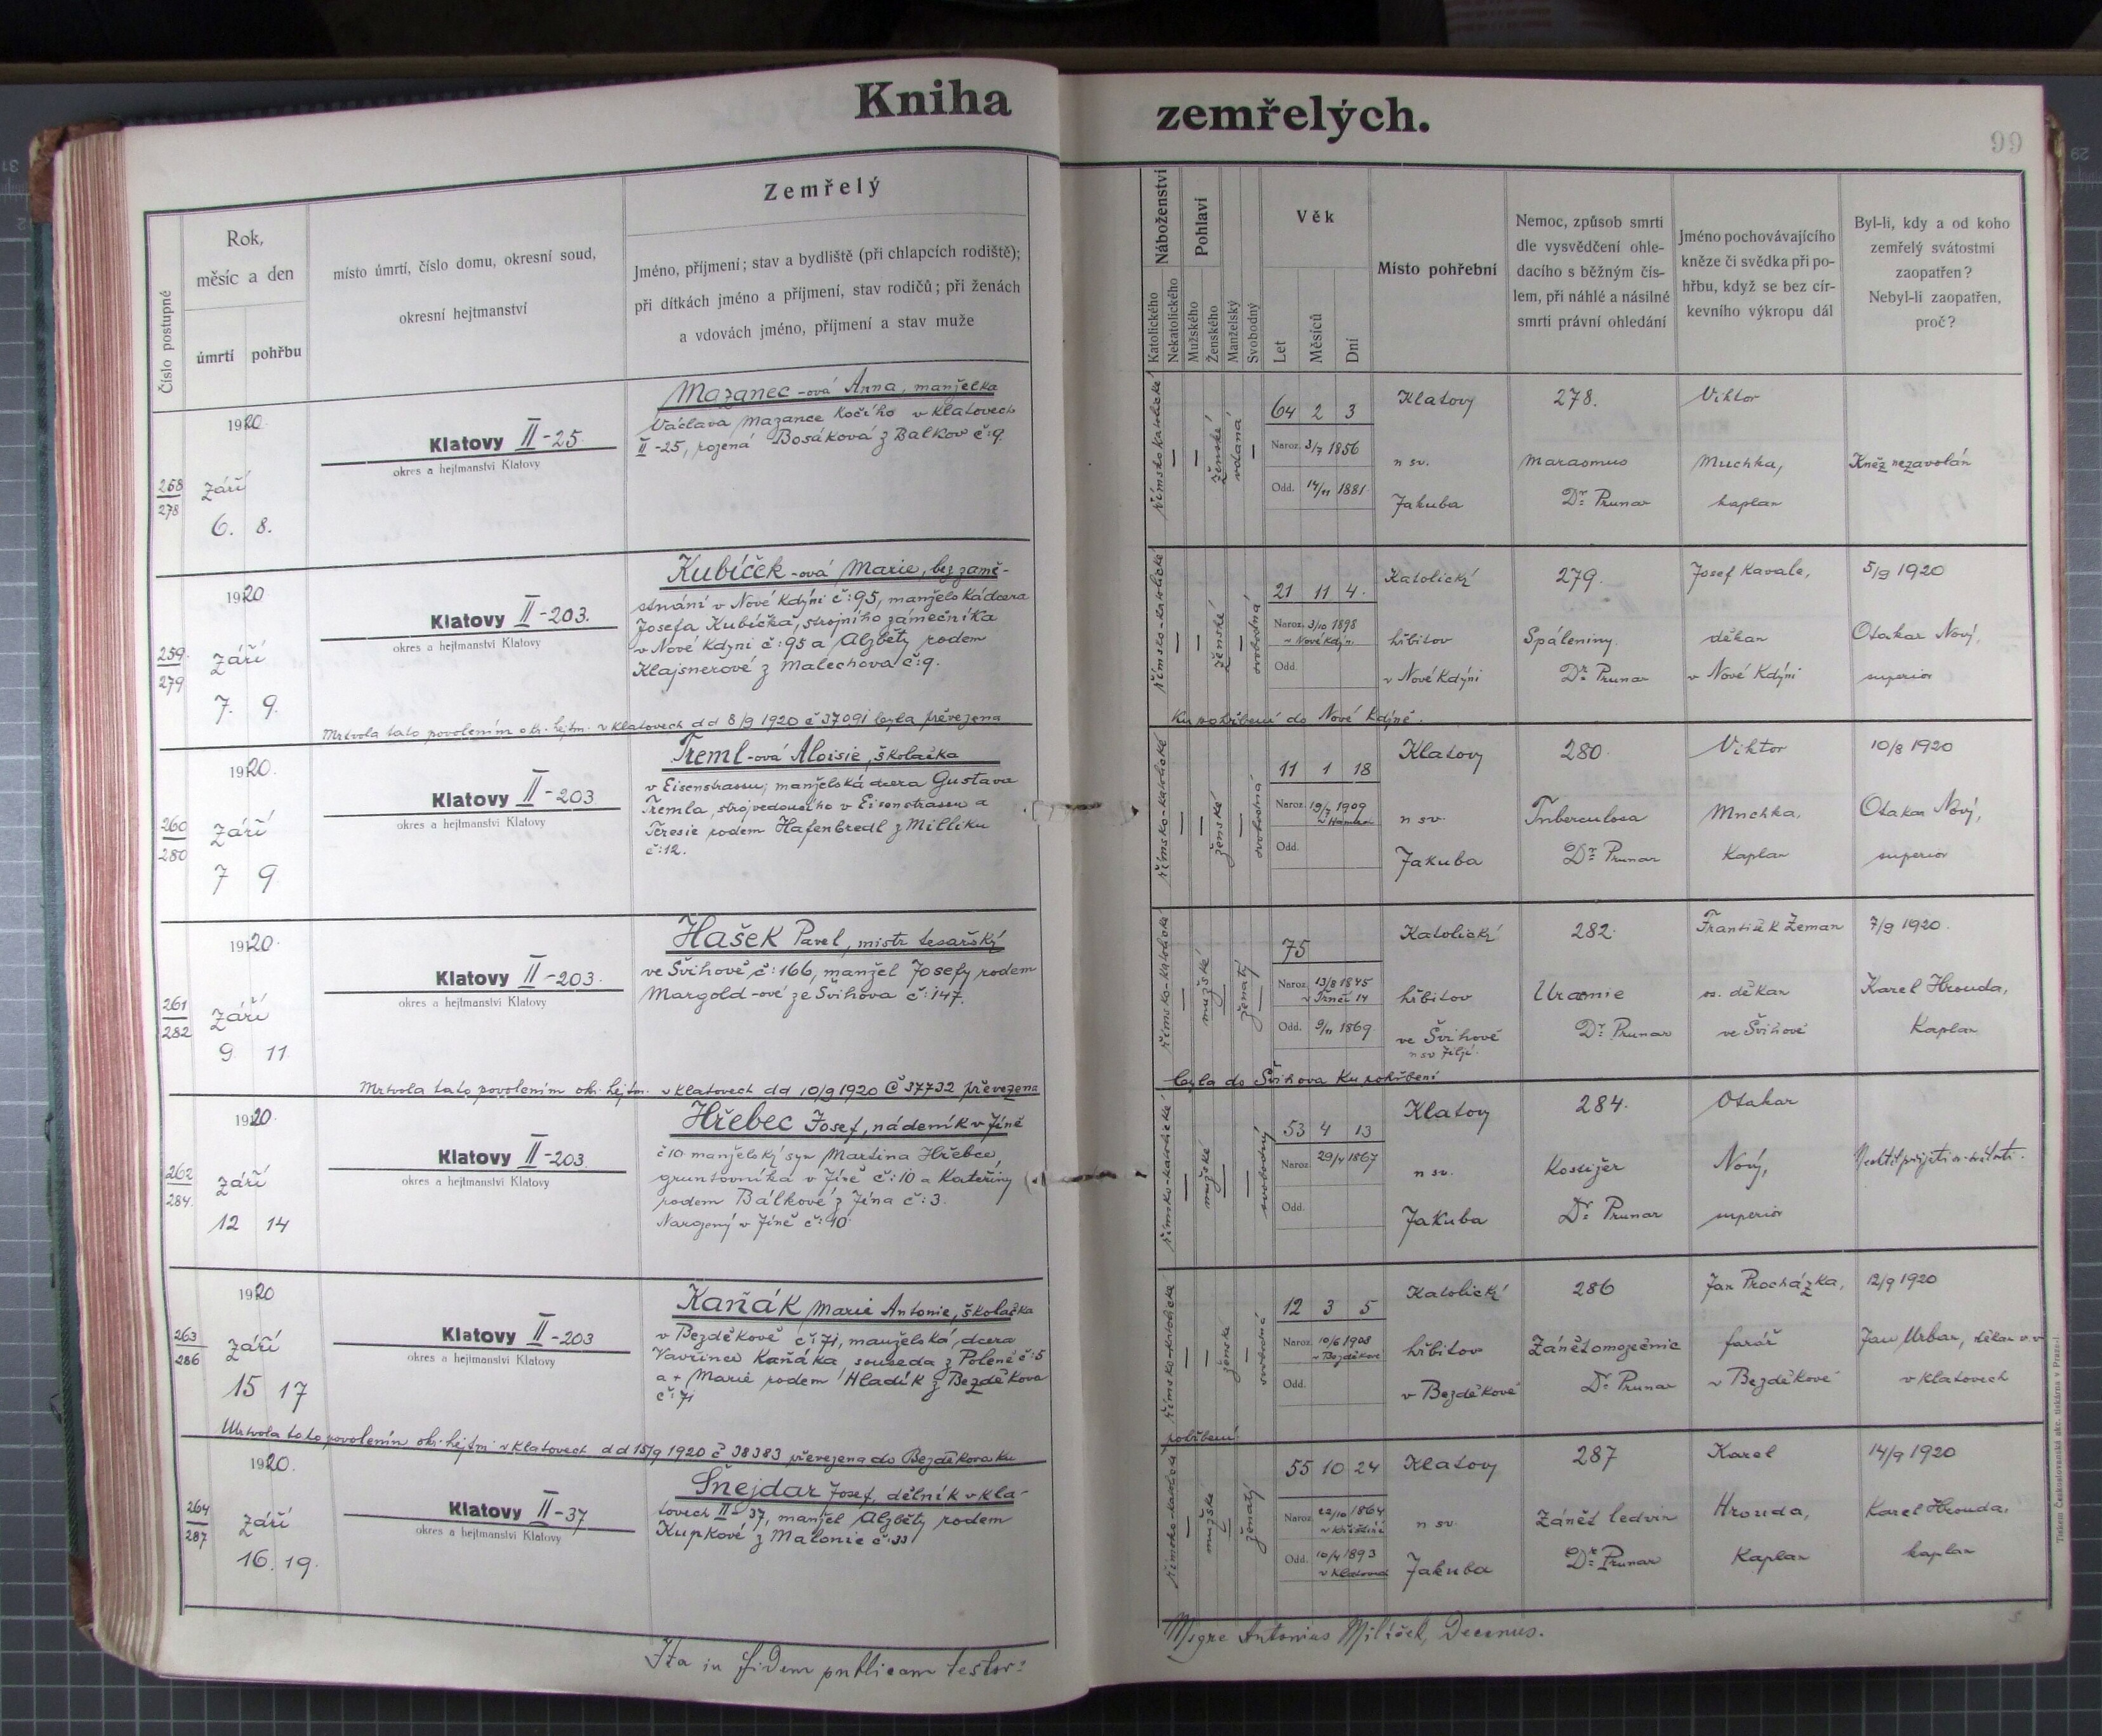 Kniha zemřelých.
99
Číslo postupné
Rok,
měsíc a den
úmrtí pohřbu
místo úmrtí, číslo domu, okresní soud,
okresní hejtmanství
Zemřelý
Jméno, příjmení; stav a bydliště (při chlapcích rodiště);
při dítkách jméno a příjmení, stav rodičů; při ženách
a vdovách jméno, příjmení a stav muže
Náboženství
Katolického
Nekatolického
Pohlaví
Mužského
Ženského
Manželský
Svobodný
Věk
Let
Měsíců
Dní
Místo pohřební
Nemoc, způsob smrti
dle vysvědčení ohle-
dacího s běžným čís-
lem, při náhlé a násilné
smrti právní ohledání
Jméno pochovávajícího
kněze či svědka při po-
hřbu, když se bez cír-
kevního výkropu dál
Byl-li, kdy a od koho
zemřelý svátostmi
zaopatřen?
Nebyl-li zaopatřen,
proč?
258
278
1920
září
6. 8.
Klatovy II-25
okres a hejtmanství Klatovy
Mazanec-ová Anna, manželka
Václava Mazance kočího v Klatovech
II-25, rozená Bosáková z Balkov č:9
římsko katolické
ženské
vdaná
64 2 3
Naroz. 3/7 1856
Odd. 14/11 1881
Klatovy
u sv.
Jakuba
278.
Marasmus
Dr Prunar
Viktor
Muchka,
kaplan
Kněz nezavolán
259
279
1920
září
7. 9.
Klatovy II-203.
okres a hejtmanství Klatovy
Kubíček-ová Marie, bez zamě-
stnání v Nové Kdyni č:95, manželská dcera
Josefa Kubíčka, strojního zámečníka
v Nové Kdyni č:95 a Alžběty rodem
Klajsnerové z Malechova č:9.
římsko-katolické
ženské
svobodná
21 11 4.
Naroz. 3/10 1898
v Nové Kdyni
Odd.
Katolický
hřbitov
v Nové Kdyni
279.
Spáleniny.
Dr Prunar
Josef Kavale,
děkan
v Nové Kdyni
5/9 1920
Otakar Nový,
superior
Mrtvola tato povolením okr. hejtm. v Klatovech dd 8/9 1920 č 37091 byla převezena
ku pohřbení do Nové Kdyně.
260
280
1920.
září
7 9
Klatovy II-203
okres a hejtmanství Klatovy
Treml-ová Aloisie, školačka
v Eisenstrassu; manželská dcera Gustava
Tremla, strojvedoucího v Eisenstrassu a
Teresie rodem Hafenbredl z Milliku
č:12.
římsko-katolické
ženské
svobodná
11 1 18
Naroz. 19/7 1909
Odd.
Klatovy
u sv.
Jakuba
280.
Tuberculosa
Dr Prunar
Viktor
Muchka,
Kaplan
10/8 1920
Otakar Nový,
superior
261
282
1920.
září
9 11
Klatovy II-203.
okres a hejtmanství Klatovy
Hašek Pavel, mistr tesařský
ve Švihově č:166, manžel Josefy rodem
Margold-ové ze Švihova č:147.
římsko-katolické
mužské
ženatý
75
Naroz. 13/8 1845
Odd. 9/11 1869
Katolický
hřbitov
ve Švihově
u sv Jiljí
282.
Uraemie
Dr Prunar
František Zeman
děkan
ve Švihově
7/9 1920.
Karel Hrouda,
Kaplan
Mrtvola tato povolením okr. hejtm. v Klatovech dd 10/9 1920 č 37732 převezena
byla do Švihova ku pohřbení
262
284
1920.
září
12 14
Klatovy II-203
okres a hejtmanství Klatovy
Hřebec Josef, nádeník v Jíně
č 10 manželský syn Martina Hřebce,
gruntovníka v Jíně č:10 a Kateřiny
rodem Bálkové z Jína č:3.
Narozený v Jíně č:10
římsko-katolické
mužské
svobodný
53 4 13
Naroz. 29/4 1867
Odd.
Klatovy
u sv.
Jakuba
284.
Dr Prunar
Otakar
Nový,
superior
263
286
1920
září
15 17
Klatovy II-203
okres a hejtmanství Klatovy
Kaňák Marie Antonie, školačka
v Bezděkově č:71, manželská dcera
Vavřince Kaňáka, souseda z Poleně č:5
a + Marie rodem Hladík z Bezděkova
č:71
římsko-katolické
ženské
svobodná
12 3 5
Naroz. 10/6 1908
v Bezděkově
Odd.
Katolický
hřbitov
v Bezděkově
286
Zánět
Dr Prunar
Jan Procházka,
farář
v Bezděkově
12/9 1920
Jan Urban, děkan v v
v Klatovech
Mrtvola tato povolením okr. hejtm. v Klatovech dd 15/9 1920 č 38383 převezena do Bezděkova ku
pohřbení
264
287
1920.
září
16. 19.
Klatovy II-37
okres a hejtmanství Klatovy
Šnejdar Josef, dělník v Kla-
tovech II-37, manžel Alžběty rodem
Kupkové z Malonic č:33
římsko-katolické
mužské
ženatý
55 10 24
Naroz. 22/10 1864
Odd. 10/4 1893
v Klatovech
Klatovy
u sv.
Jakuba
287
Zánět ledvin
Dr Prunar
Karel
Hrouda,
Kaplan
14/9 1920
Karel Hrouda,
kaplan
Ita in fidem publicam testor:
Msgre Antonius Mlíček, Decanus.
Tiskem Československé akc. tiskárny v Praze-I.